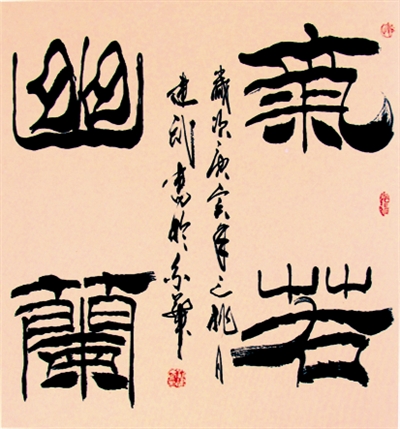 氣若
幽蘭
歲次庚寅年之桃月
建書於京華